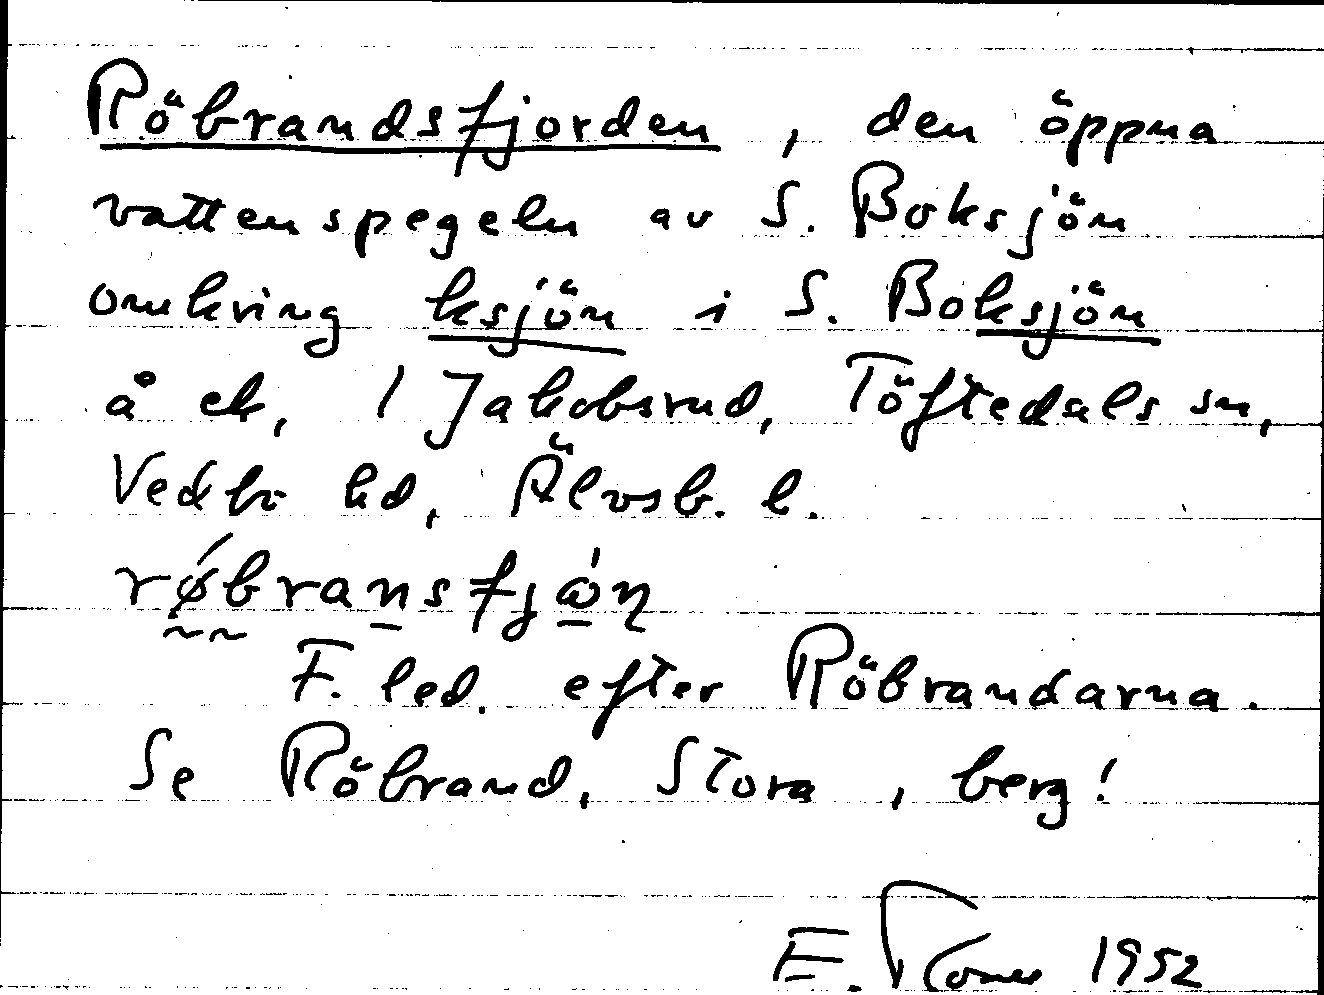 Röbrandsfjorden, den öppna
vattenspegeln av S. Boksjön
omkring ksjön i S. Boksjön
å ek, 1 Jakobsrud, Töftedals sn,
Vedbo hd, Älvsb. l.
rǿbransfjώη
F. led. efter Röbrandarna.
Se Röbrand, Stora, berg!
E. 1952